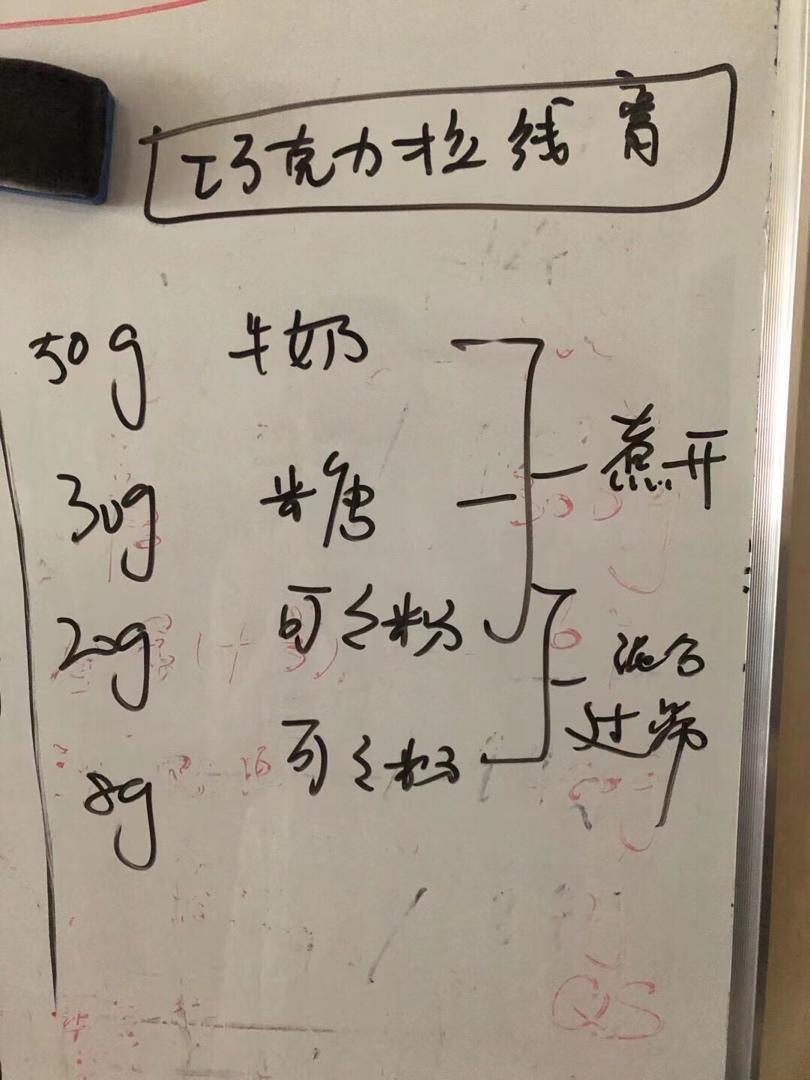 巧克力拉线膏
50g 牛奶
30g 糖
煮开
20g 可々粉
8g 可々粉
混合
过筛
QS